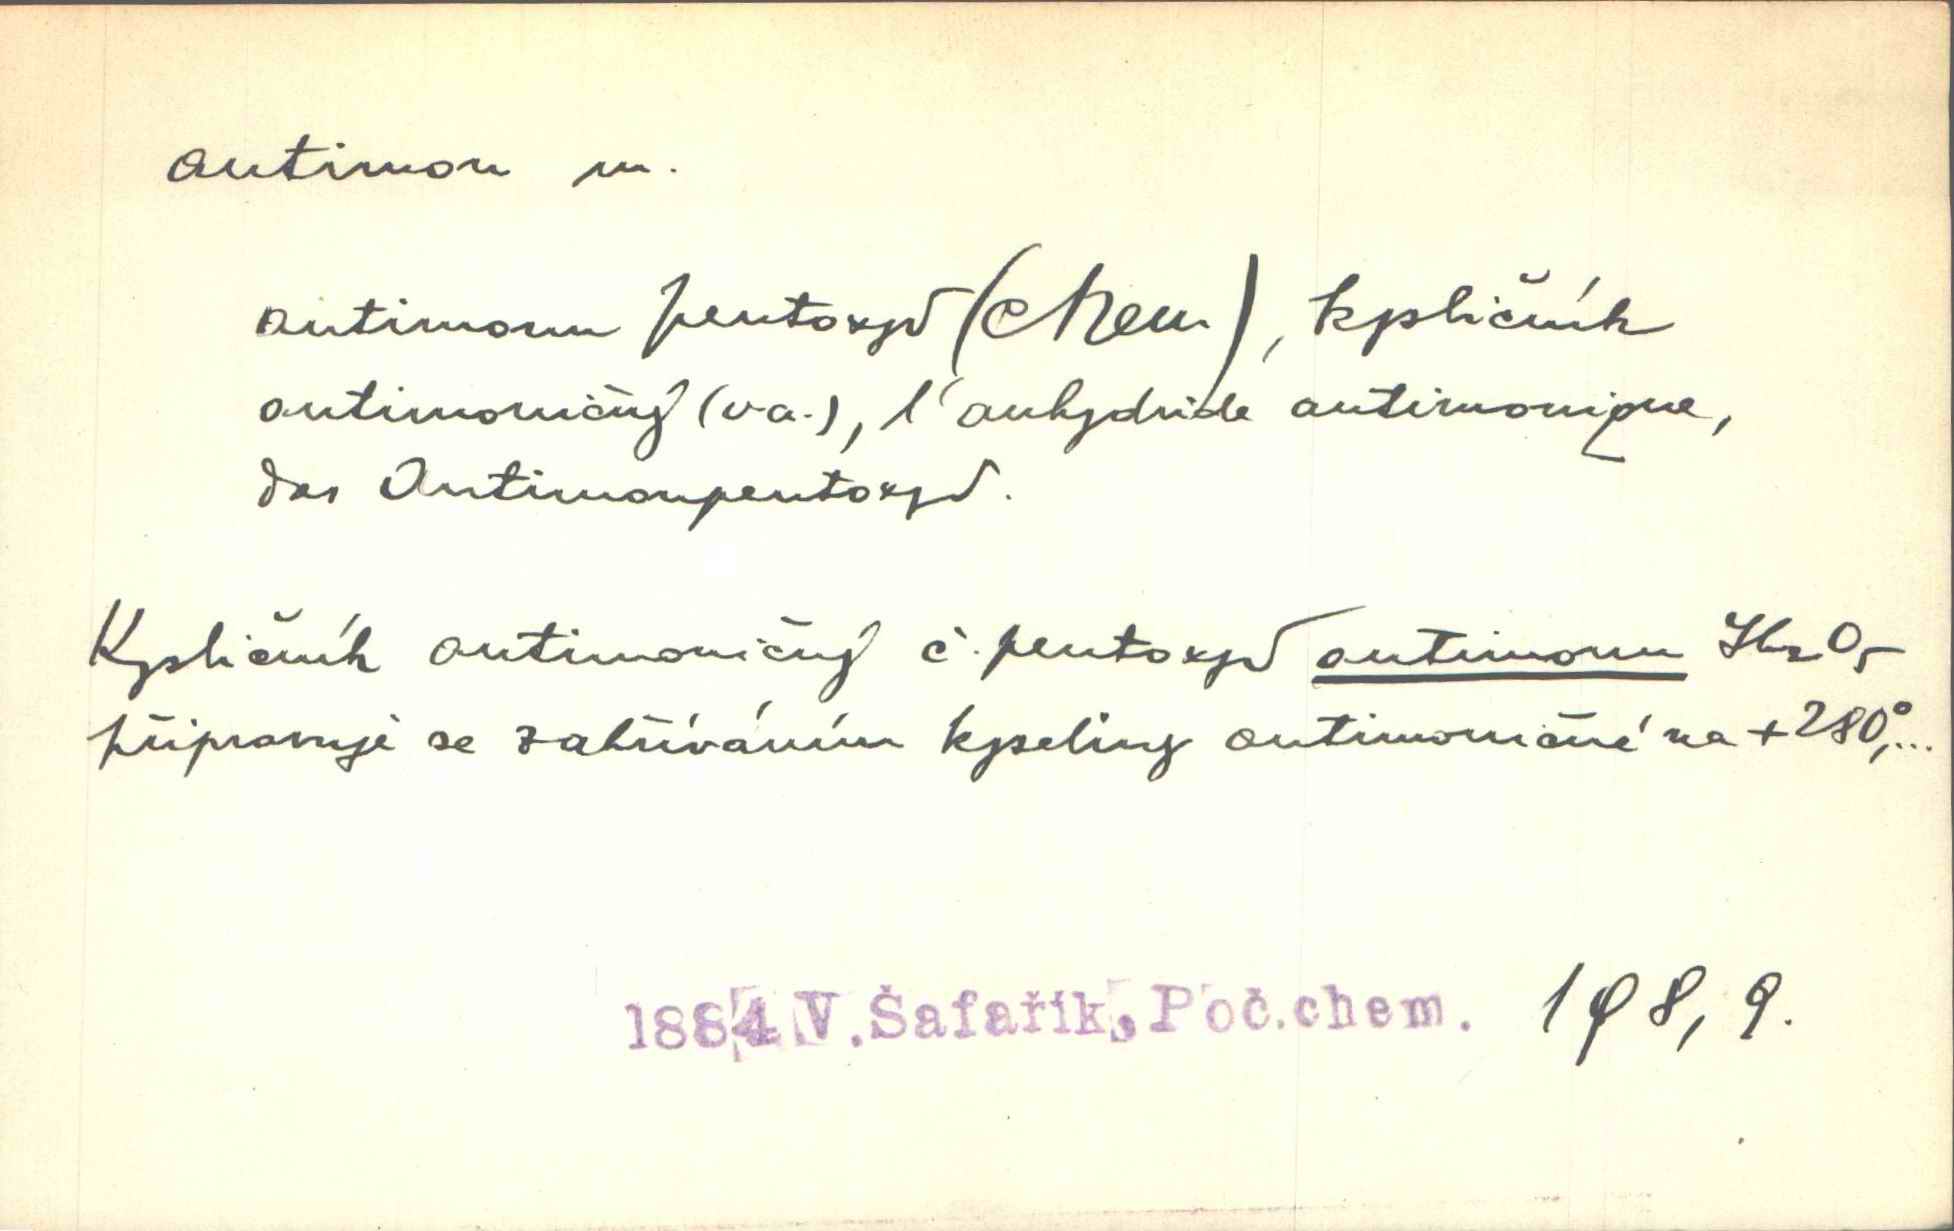 antimon m.
antimonu pentoxyd (chem.), kysličník
antimoničný (va.), l'anhydride antimonique,
das Antimonpentoxyd.
Kysličník antimoničný č. pentoxyd antimonu Sb₂O₅
připravuje se zahříváním kyseliny antimoničné na +280°,...
1884 V. Šafařík, Poč.chem. 198, 9.